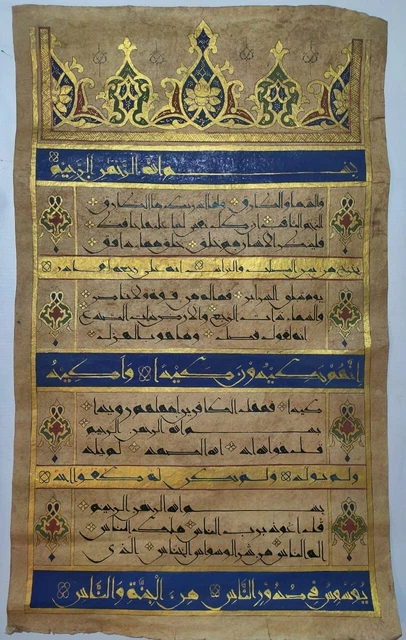 بسم الله الرحمن الرحيم
والسماء والطارق وما ادريك ما الطارق
النجم الثاقب ان كل نفس لما عليها حافظ
فلينظر الانسان مم خلق خلق من ماء دافق
يخرج من بين الصلب والترائب انه على رجعه لقادر
يوم تبلى السرائر فما له من قوة ولا ناصر
والسماء ذات الرجع والارض ذات الصدع
انه لقول فصل وما هو بالهزل
انهم يكيدون كيدا واكيد
كيدا فمهل الكافرين امهلهم رويدا
بسم الله الرحمن الرحيم
قل هو الله احد الله الصمد لم يلد
ولم يولد ولم يكن له كفوا احد
بسم الله الرحمن الرحيم
قل اعوذ برب الناس ملك الناس
اله الناس من شر الوسواس الخناس الذي
يوسوس في صدور الناس من الجنة والناس